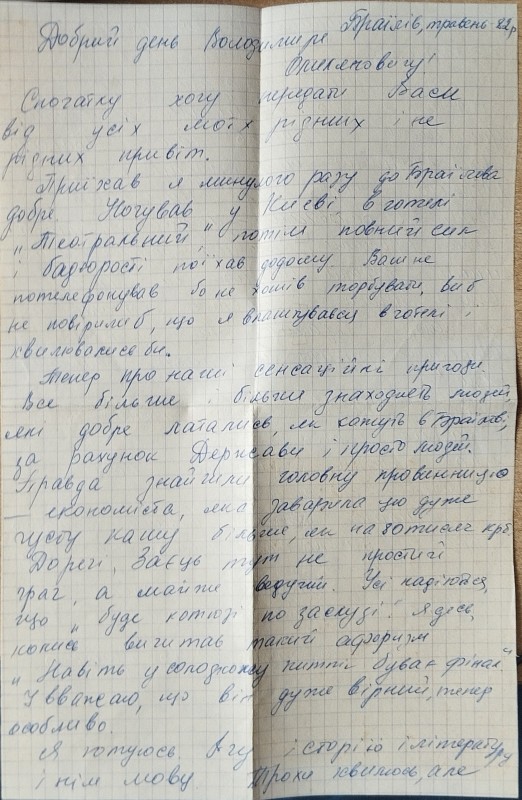 Браїлів, травень-82р
Добрий день Володимире
Омеляновичу!
Спочатку хочу передати Вам
від усіх моїх рідних і не
рідних привіт.
Приїхав я минулого разу до Браїлова
добре. Ночував у Києві, в готелі
„Театральний", потім повний сил
і бадьорості поїхав додому. Вам не
потелефонував бо не хотів турбувати, Ви б
не повірили б, що я влаштувався в готелі і
хвилювалися би.
Тепер про наші сенсаційні пригоди.
Все більше і більше знаходять людей,
які добре латались, як кажуть в Браїлові,
за рахунок Держави і просто людей.
Правда знайшли головну провинницю
— економіста, яка заварила цю дуже
густу кашу більше, як на 80 тисяч крб.
Доречі, Заєць тут не простий
грач, а майже ведучий. Усі надіються,
що „буде котюзі по заслузі". Я десь,
колись вичитав такий афоризм
„Навіть у солодкому житті буває фінал"
І вважаю, що він дуже вірний, тепер
особливо.
Я готуюсь вчу історію і літературу
і нім мову Трохи хвилююсь, але